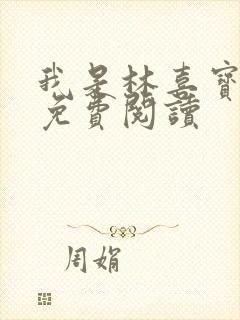 我是林喜寶
免費閱讀
周娟